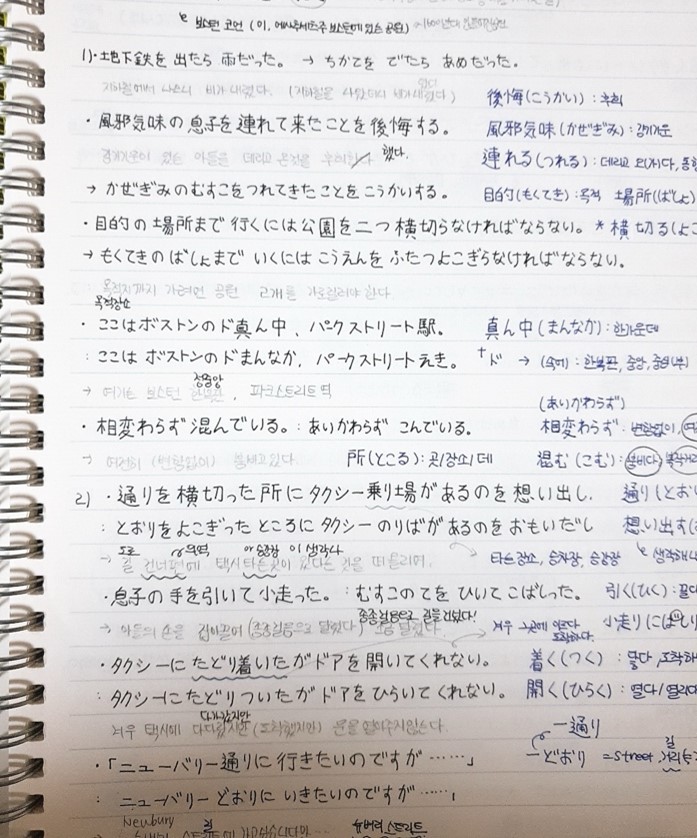 보스턴 코먼 (미, 매사추세츠주 보스턴에 있는 공원)
1)・地下鉄を出たら雨だった。 → ちかてを でたら あめだった。
지하철에서 나오니 비가 내렸다.
後悔(こうかい) : 후회
・風邪気味の息子を連れて来たことを後悔する。 風邪気味(かぜぎみ) : 감기기운
감기기운이 있는 아들을 데리고 온것을 후회 했다.
連れる(つれる) : 데리고
→ かぜぎみのむすこをつれてきたことをこうかいする。 目的(もくてき) : 목적 場所(ばしょ)
・目的の場所まで行くには公園を二つ横切らなければならない。 * 横切る(よこ
→ もくてきの ばしょまで いくには こうえんを ふたつよこぎらなければならない。
목적지까지 가려면 공원 2개를 가로질러야 한다
목적장소
・ここはボストンのド真ん中、パークストリート駅。 真ん中(まんなか) : 한가운데
: ここは ボストンのドまんなか、パークストリートえき。 ド → (속어) : 한복판, 중앙, 중심부
→ 여기는 보스턴 한복판, 파크스트리트역
정중앙
(あいかわらず)
・相変わらず混んでいる。 : あいかわらず こんでいる。 相変わらず : 변함없이,
→ 여전히 (변함없이) 붐비고있다. 所(ところ) : 곳/장소/데 混む(こむ) : 붐비다,
2)・通りを横切った所にタクシー乗り場があるのを想い出し、 通り(とお
: とおりをよこぎった ところに タクシー のりばが あるのを おもいだし 想い出す(
도로
→ 길 건너편에 택시타는곳이 있다는 것을 떠올리며, 타는장소, 승차장, 승강장
승강장 이 생각나
・息子の手を引いて小走った。 : むすこのてを ひいて こばしった。 引く(ひく) :
종종걸음으로 길을 건넜다!
→ 아들의 손을 잡아끌어 (종종걸음으로 달렸다) 小走り(こばしり)
・タクシーにたどり着いたがドアを開いてくれない。 着く(つく) :
: タクシーにたどりついたがドアをひらいてくれない。 開く(ひらく) : 열다/
다가갔지만
겨우 택시에 다다랐지만 (도착했지만) 문을 열어주지않는다.
一通り
・「ニューバリー通りに行きたいのですが……」 ーどおり =street,
길
: ニューバリー どおりに いきたいのですが……、
Newbury 길 뉴버리 스트리트